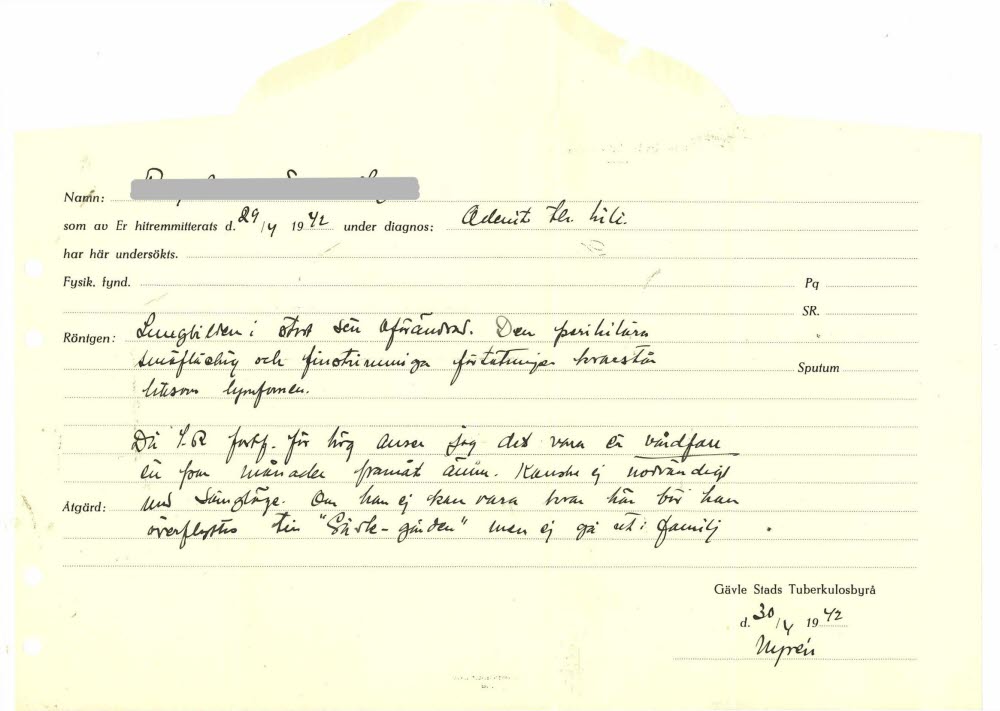 Namn:
som av Er hitremmitterats d. 29/4 1942 under diagnos: Adenit tbc hili.
har här undersökts.
Fysik. fynd.
Pq
SR.
Röntgen: Lungbilden i stort sett oförändrad. Den perihilära
småfläckig och finstrimmiga förtätningen kvarstår
liksom lymfomen.
Sputum
Då S.R fortf. för hög anser jag det vara ett vårdfall
ett par månader framåt ännu. Kanske ej nödvändigt
Åtgärd: med sängläge. Om han ej kan vara kvar här bör han
överflyttas till "-gården" men ej gå ut i familj
Gävle Stads Tuberkulosbyrå
d. 30/4 1942
Nyrén